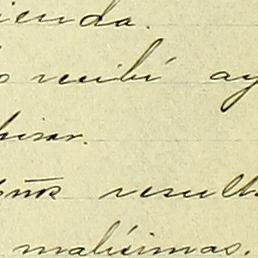 ienda.
recibí ay
birar.
result
malísimas.